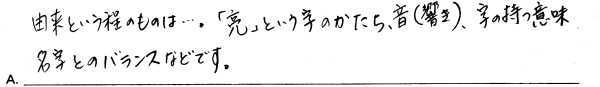 由来という程のものは…。「亮」という字のかたち、音(響き)、字の持つ意味
名字とのバランスなどです。
A.